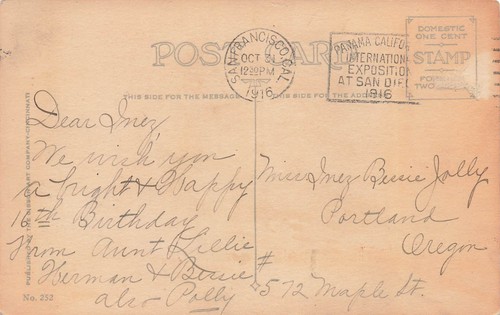 POST CARD
SAN FRANCISCO, CAL.
OCT 24
12 30 PM
1916
PANAMA CALIFOR
INTERNATION
EXPOSITIO
AT SAN DIE
1916
DOMESTIC
ONE CENT
STAMP
FOREIGN
TWO
THIS SIDE FOR THE MESSAGE
THIS SIDE FOR THE ADDRESS
Dear Inez,
We wish you
a bright & Happy
Birthday
From Aunt Lillie
Herman & Bessie
also Polly
Miss Inez Bessie Jolly
Portland
Oregon
# 572 Maple St.
No. 252